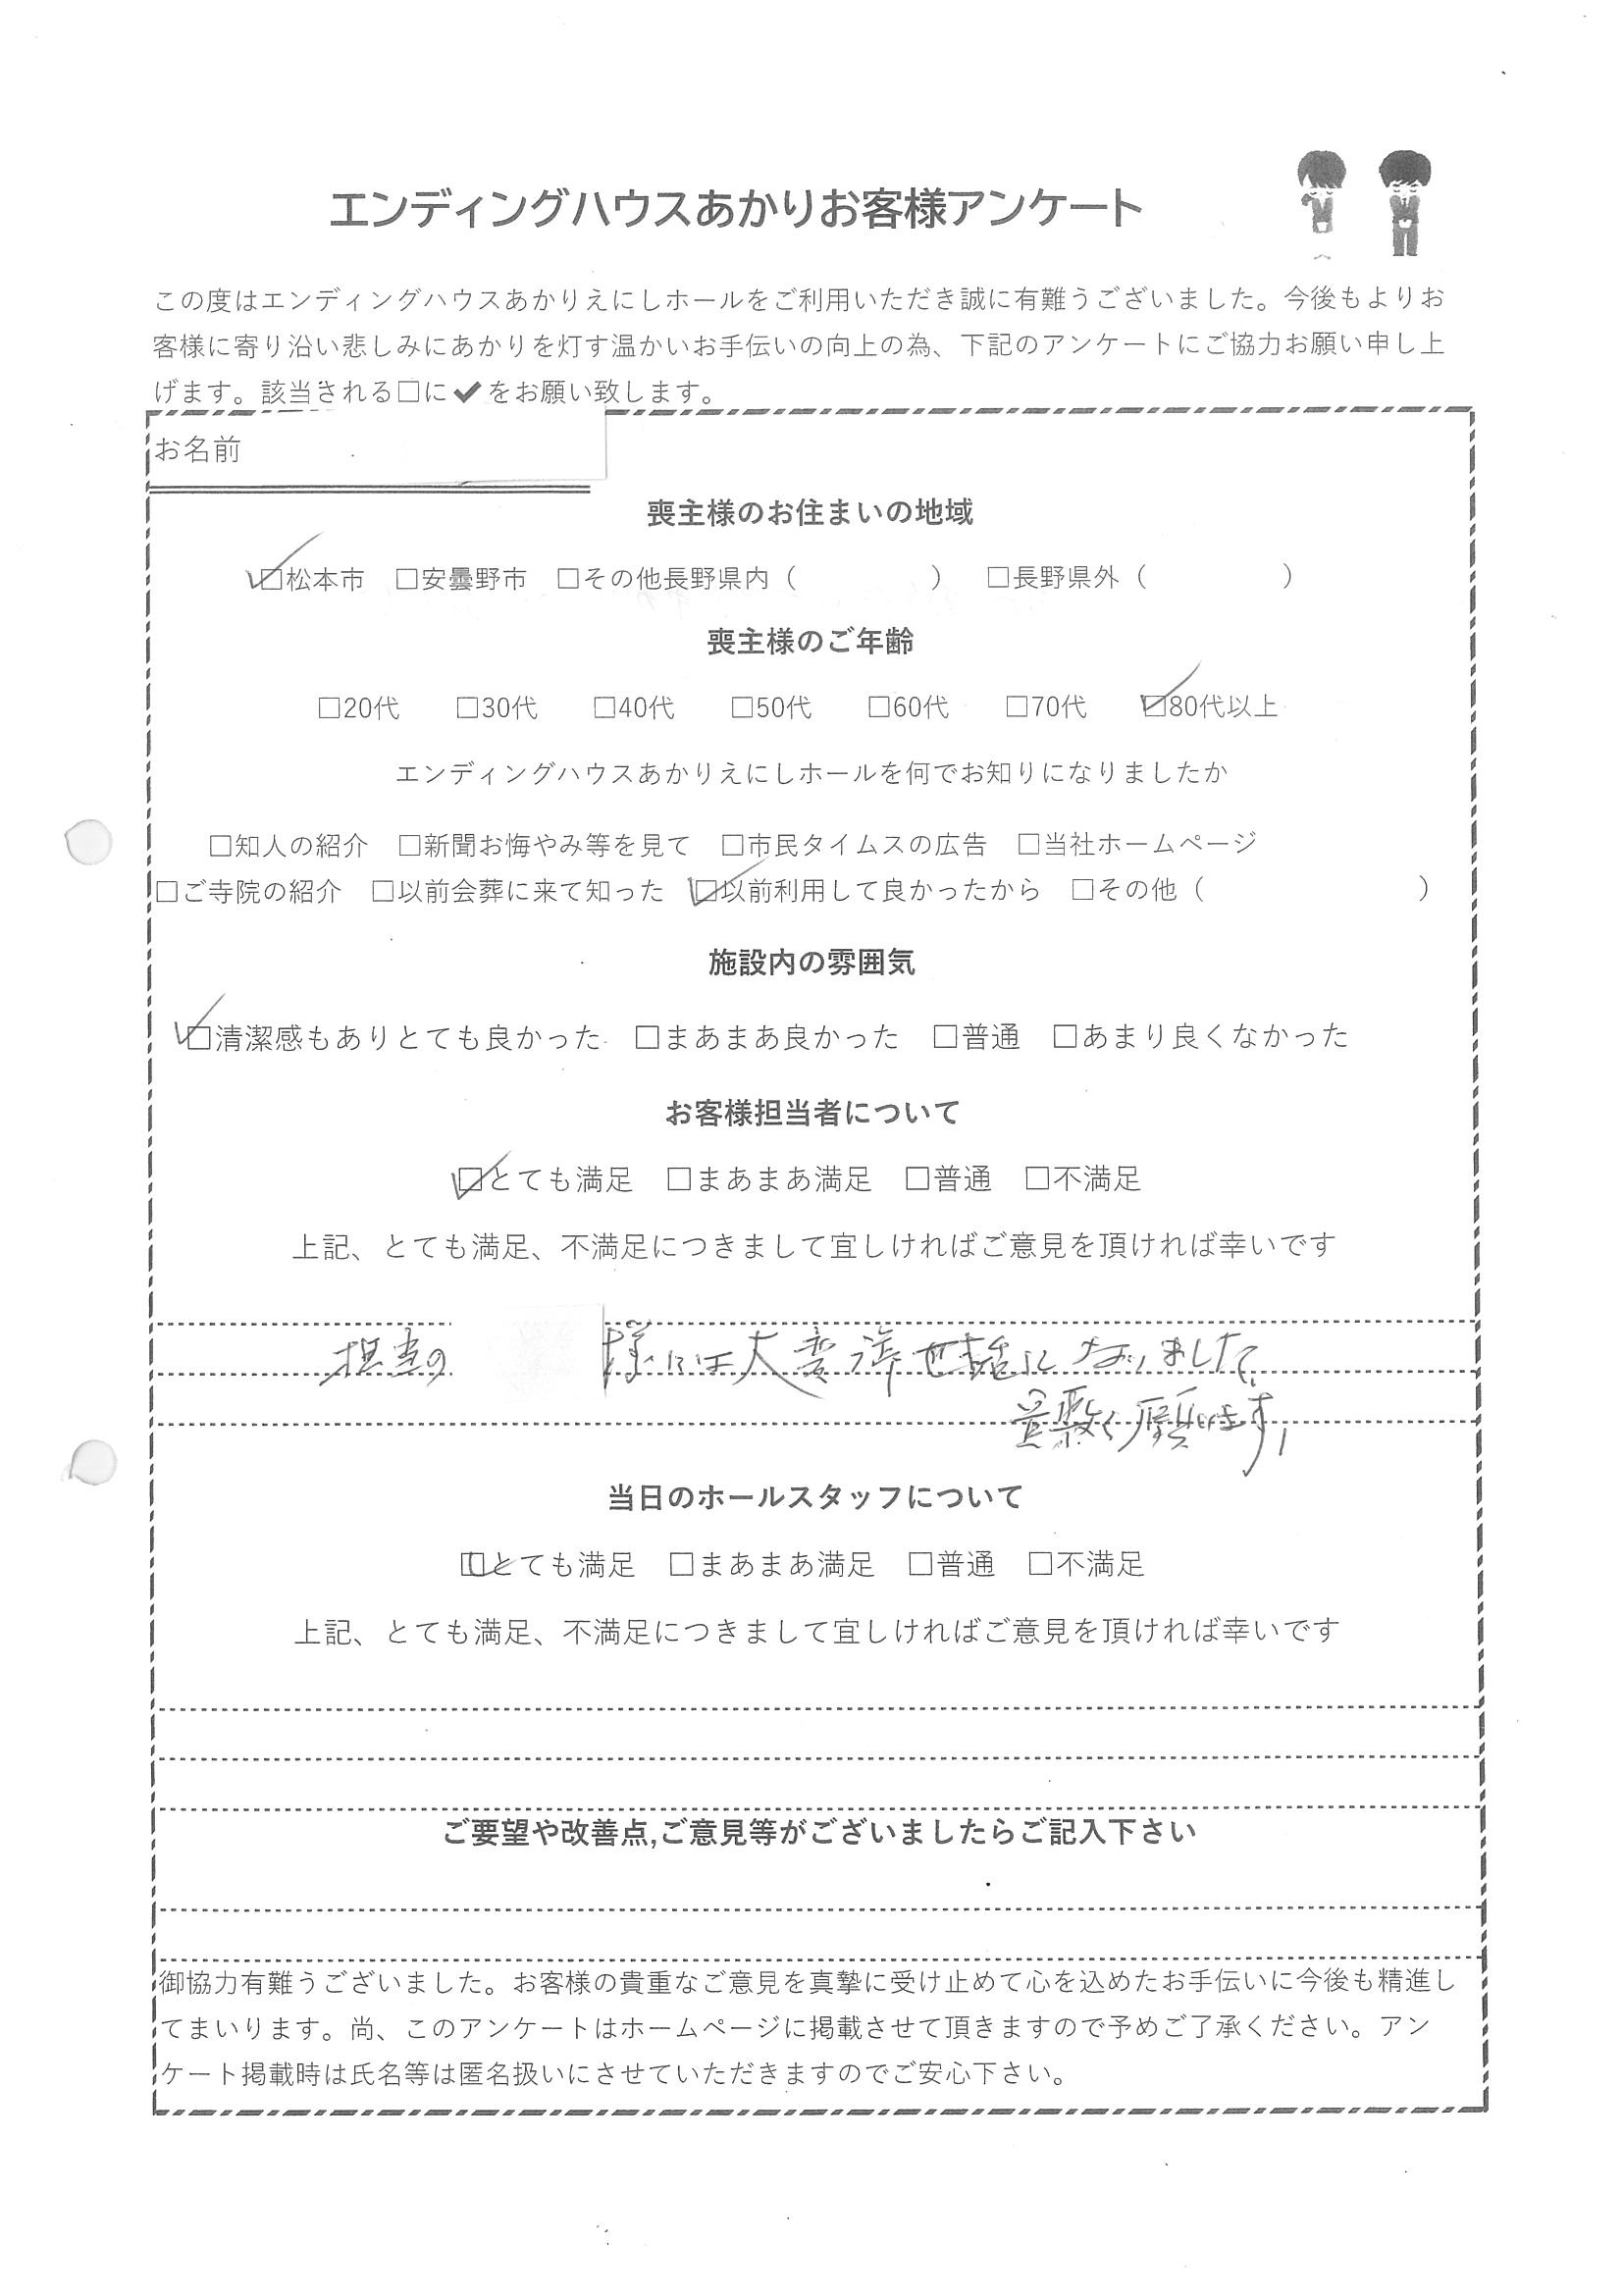 エンディングハウスあかりお客様アンケート
この度はエンディングハウスあかりえにしホールをご利用いただき誠に有難うございました。今後もよりお
客様に寄り沿い悲しみにあかりを灯す温かいお手伝いの向上の為、下記のアンケートにご協力お願い申し上
げます。該当される□に✔をお願い致します。
お名前
喪主様のお住まいの地域
☑松本市 □安曇野市 □その他長野県内（ ） □長野県外（ ）
喪主様のご年齢
□20代 □30代 □40代 □50代 □60代 □70代 ☑80代以上
エンディングハウスあかりえにしホールを何でお知りになりましたか
□知人の紹介 □新聞お悔やみ等を見て □市民タイムスの広告 □当社ホームページ
□ご寺院の紹介 □以前会葬に来て知った ☑以前利用して良かったから □その他（ ）
施設内の雰囲気
☑清潔感もありとても良かった □まあまあ良かった □普通 □あまり良くなかった
お客様担当者について
☑とても満足 □まあまあ満足 □普通 □不満足
上記、とても満足、不満足につきまして宜しければご意見を頂ければ幸いです
担当の 様には大変御世話になりました。
願います
当日のホールスタッフについて
☑とても満足 □まあまあ満足 □普通 □不満足
上記、とても満足、不満足につきまして宜しければご意見を頂ければ幸いです
ご要望や改善点,ご意見等がございましたらご記入下さい
御協力有難うございました。お客様の貴重なご意見を真摯に受け止めて心を込めたお手伝いに今後も精進し
てまいります。尚、このアンケートはホームページに掲載させて頂きますので予めご了承ください。アン
ケート掲載時は氏名等は匿名扱いにさせていただきますのでご安心下さい。